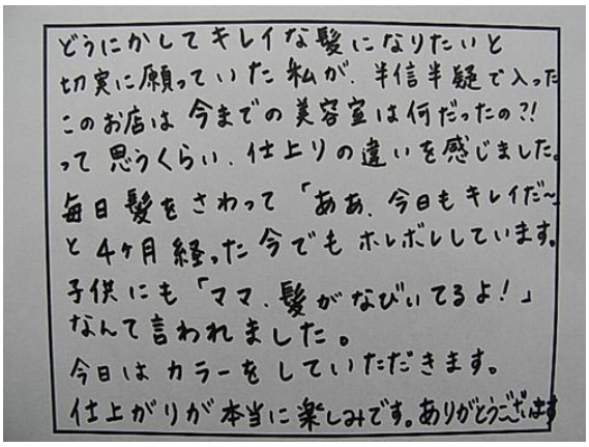 どうにかしてキレイな髪になりたいと
切実に願っていた私が、半信半疑で入った
このお店は今までの美容室は何だったの?!
って思うくらい、仕上りの違いを感じました。
毎日髪をさわって「ああ、今日もキレイだ〜
と4ヶ月経った今でもホレボレしています。
子供にも「ママ、髪がなびいてるよ!」
なんて言われました。
今日はカラーをしていただきます。
仕上がりが本当に楽しみです。ありがとうございます